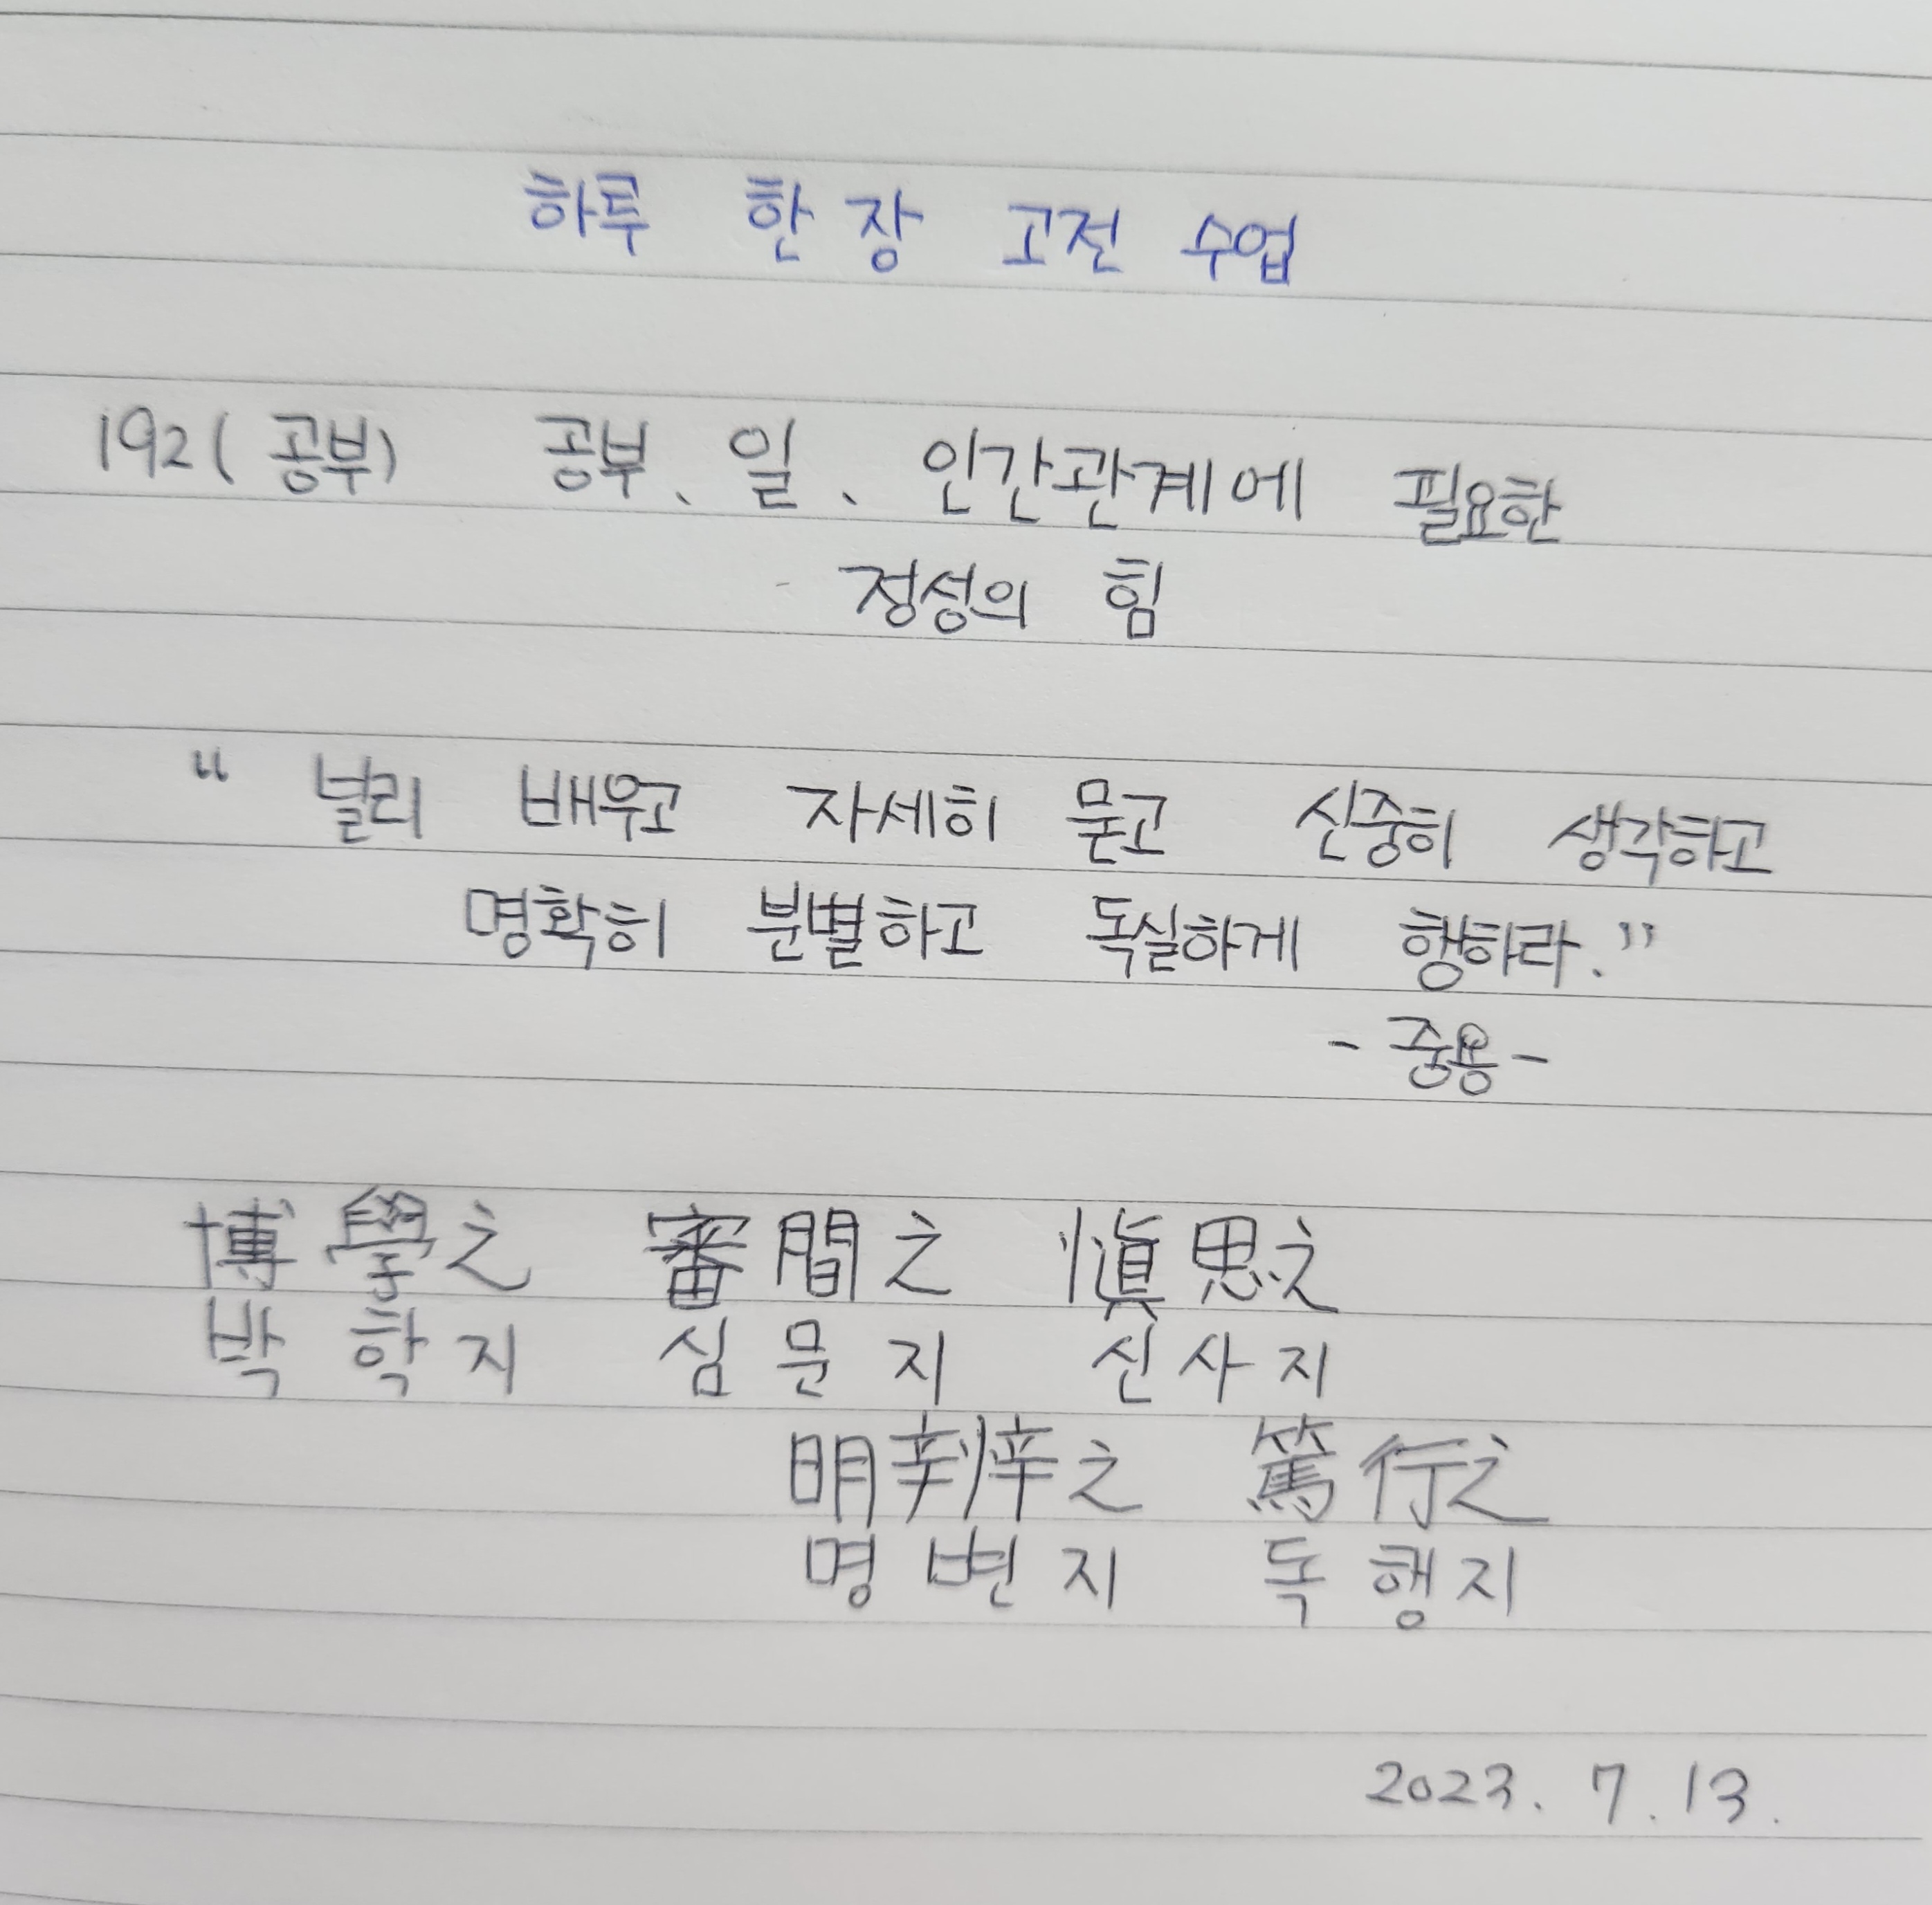 하루 한 장 고전 수업
192(공부) 공부、일、인간관계에 필요한
정성의 힘
“널리 배우고 자세히 묻고 신중히 생각하고
명확히 분별하고 독실하게 행하라.”
- 중용 -
博學之 審問之 愼思之
박학지 심문지 신사지
明辨之 篤行之
명변지 독행지
2023. 7. 13.